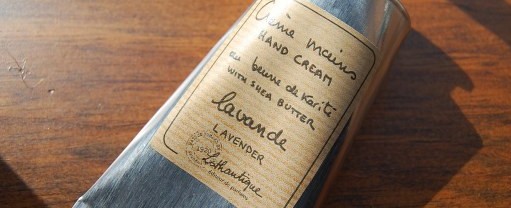 Crème mains
HAND CREAM
au beurre de Karité
WITH SHEA BUTTER
lavande
LAVENDER
Lothantique